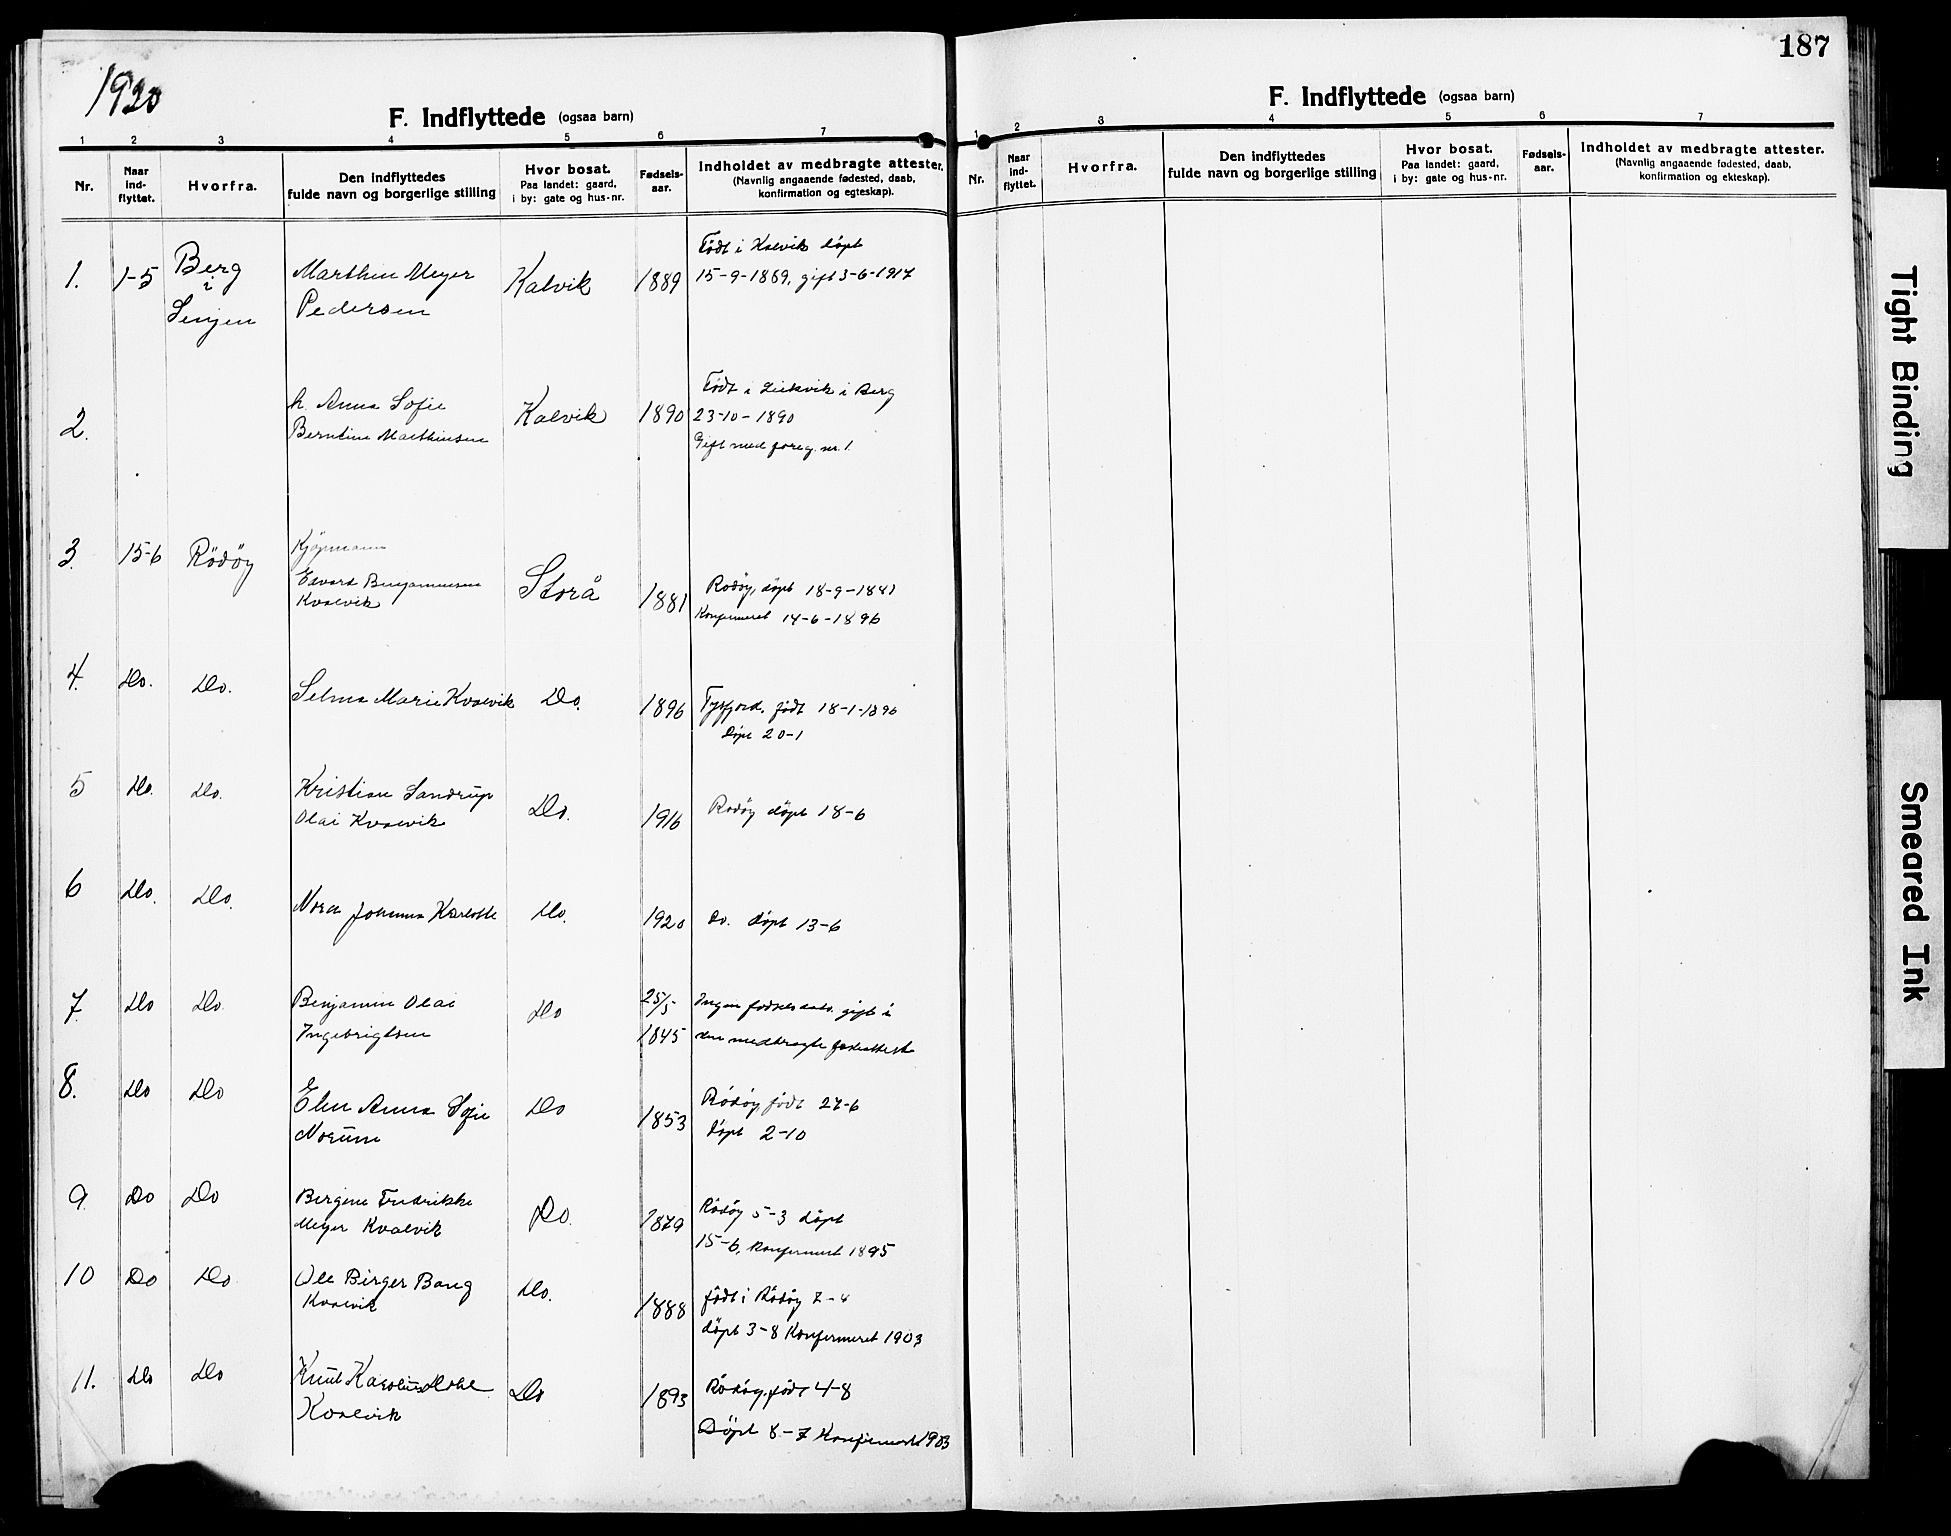 1920
F. Indflyttede (ogsaa barn)
1 2 3 4 5 6 7
Nr.
Naar ind-flyttet.
Hvorfra.
Den indflyttedes
fulde navn og borgerlige stilling
Hvor bosat.
Paa landet: gaard,
i by: gate og hus-nr.
Fødsels-aar.
Indholdet av medbragte attester.
(Navnlig angaaende fødested, daab,
konfirmation og egteskap).
1. 1-5 Berg i Senjen
Marthin Meyer
Pedersen
Kalvik 1889
Født i Kalvik døpt
15-9-1889, gift 3-6-1917
2.
h. Anna Sofie
Berntine Marthinsen
Kalvik 1890
Født i
i Berg
23-10-1890
Gift med foreg. nr. 1.
3. 15-6 Rödöy
Kjöpmann
Edvard Benjaminsen
Kvalvik
Storå 1881
Rödöy, döpt 18-9-1881
Konfirmeret 14-6-1896
4. Do. Do. Selma Marie Kvalvik Do. 1896
Tysfjord. födt 18-1-1896
Döpt 20-1
5 Do. Do.
Kristian Sandrup
Olai Kvalvik
Do. 1916 Rödöy döpt 18-6
6 Do. Do. Nora Johanna Karlotte Do. 1920 Do. döpt 13-6
7. Do Do
Benjamin Olai
Ingebrigtsen
Do
25/5
1845
Ingen fødselsdato gift i
den medbragte
8. Do Do
Elen Anna Sofie
Norum
Do 1853
Rödöy, födt 27-6
döpt 2-10
9. Do Do
Bergine Fredrikke
Meyer Kvalvik
Do. 1879
Rödöy 5-3 döpt
15-6, Konfirmert 1895
10 Do Do
Ole Birger Bang
Kvalvik
Do. 1888
födt i Rödöy 7-4
döpt 3-8 Konfirmeret 1903
11. Do Do
Knut Karolius
Kvalvik
Do 1893
Rödöy, födt 4-8
Döpt 8-7 Konfirmert 1903
187
F. Indflyttede (ogsaa barn)
1 2 3 4 5 6 7
Nr.
Naar ind-flyttet.
Hvorfra.
Den indflyttedes
fulde navn og borgerlige stilling
Hvor bosat.
Paa landet: gaard,
i by: gate og hus-nr.
Fødsels-aar.
Indholdet av medbragte attester.
(Navnlig angaaende fødested, daab,
konfirmation og ekteskap).
Tight Binding
Smeared Ink